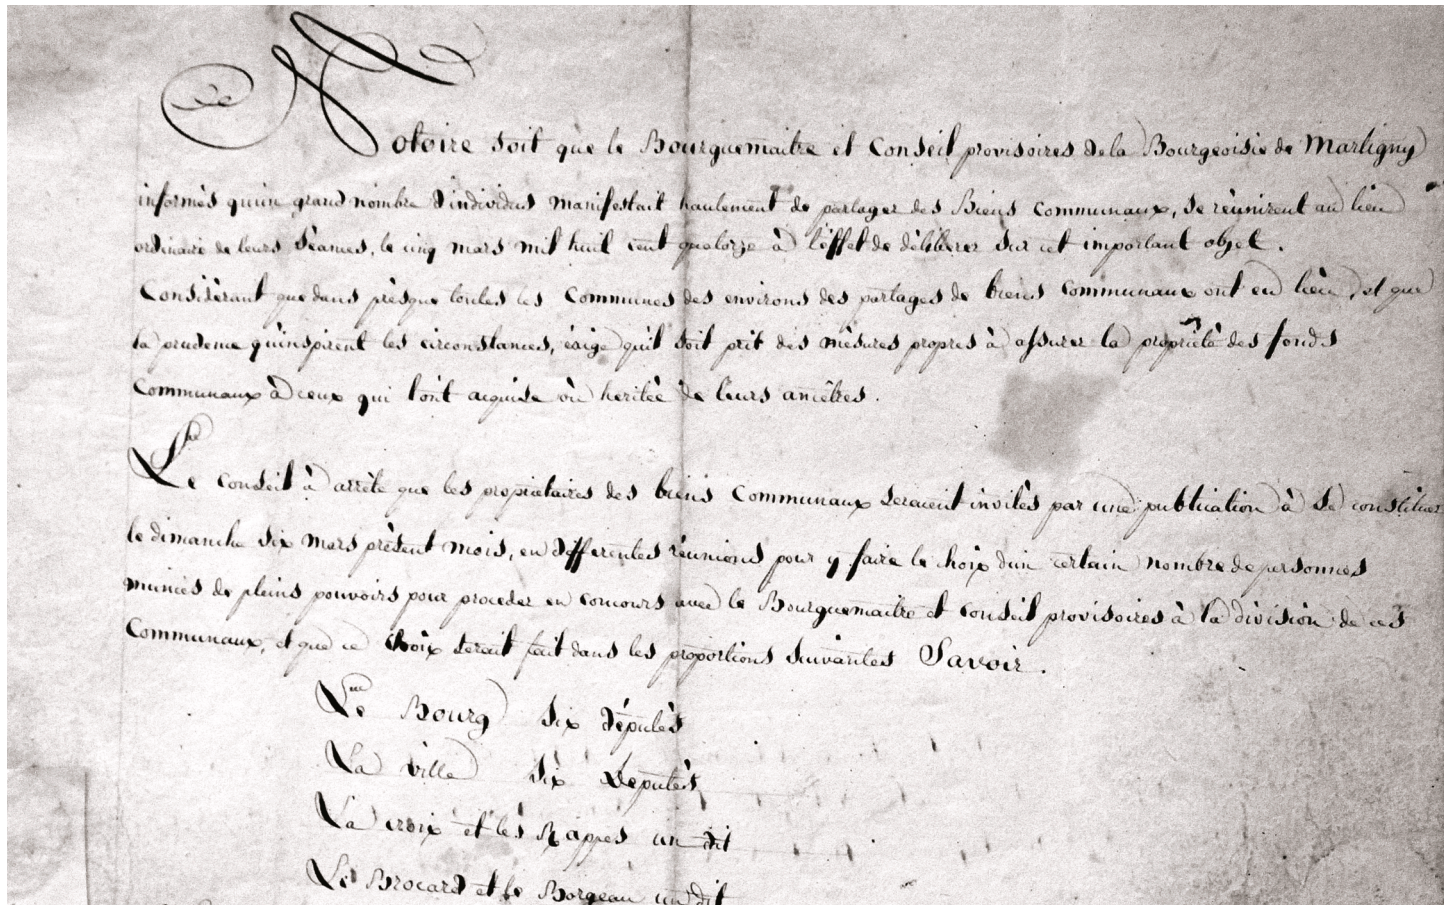 Notoire soit que le Bourguemaitre et Conseil provisoires de la Bourgeoisie de Martigny
informès qu'un grand nombre d'individus manifestait hautement de partager des Biens Communaux, se réunirent au lieu
ordinaire de leurs Séances, le cinq mars mil huit cent quatorze à l'éffet de délibérer sur cet important objet.
Considèrant que dans prèsque toutes les Communes des environs des partages de biens Communaux ont eu lieu, et que
la prudence qu'inspirent les circonstances, éxige qu'il soit prit des mèsures propres à assurer la propriètè des fonds
Communaux à ceux qui l'ont acquise où heritèe de leurs ancêtres.
Le Conseil à arrête que les propriètaires des biens Communaux seraient invitès par une publication à se constituer
le dimanche six mars prèsent mois, en differentes rèunions pour y faire le choix d'un certain nombre de personnes
munies de pleins pouvoirs pour proceder en concours avec le Bourguemaitre et Conseil provisoires à la division de ces
Communaux, et que ce choix serait fait dans les proportions suivantes Savoir.
Le Bourg six députès
La ville six deputès
La croix et les Rappes un dit
Le Brocard et le Borgeau un dit